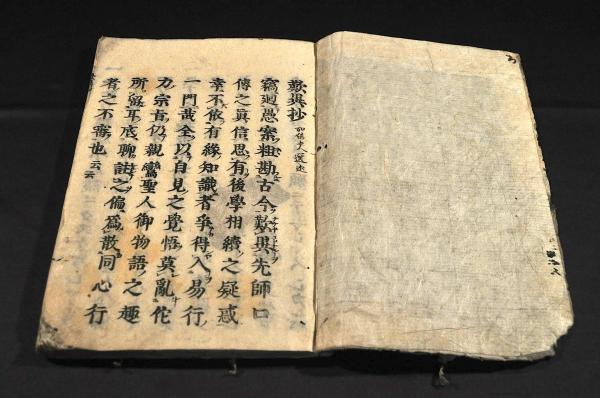 歎異抄 如信上人選述
竊廻愚案粗勘古今歎異先師口
傳之眞信思有後學相續之疑惑
幸不依有緣知識者爭得入易行
一門哉全以自見之覺悟莫亂佗
力宗旨仍親鸞聖人御物語之趣
所留耳底聊註之偏爲散同心行
者之不審也云云